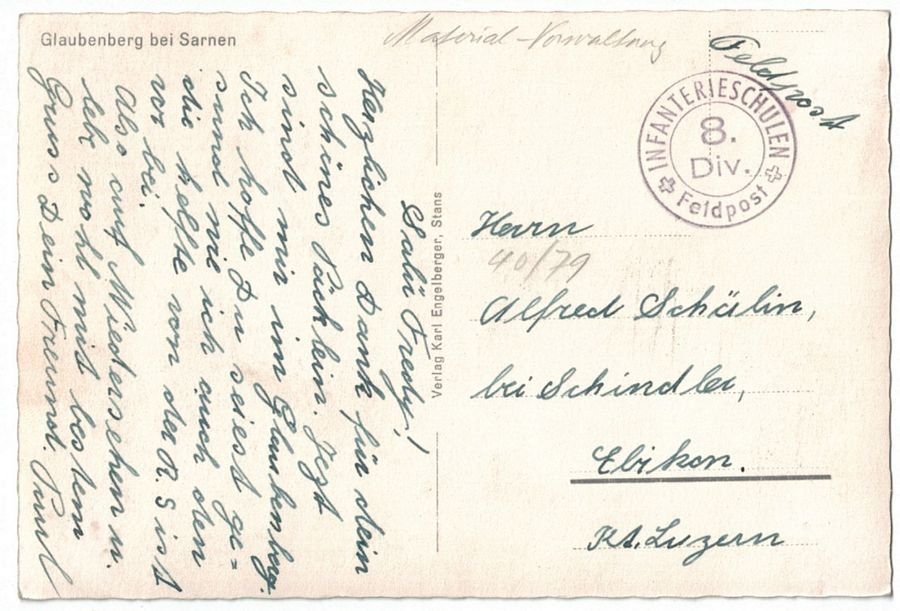 Glaubenberg bei Sarnen
Material-Verwaltung
Feldpost
INFANTERIESCHULEN
8.
Div.
Feldpost
Salü Fredy!
Herzlichen Dank für dein
schönes Päcklein. Jezt
sind mir im Glaubenberg.
Ich hoffe Du seiest ge=
sund wie ich auch den
die helfte von der R.S ist
vor bei.
Also auf Wiedersehen u.
leb wohl mit bestem
Gruss Dein Freund. Paul
Verlag Karl Engelberger, Stans
Herrn
40/79
Alfred Schälin,
bei Schindler,
Ebikon.
Kt. Luzern